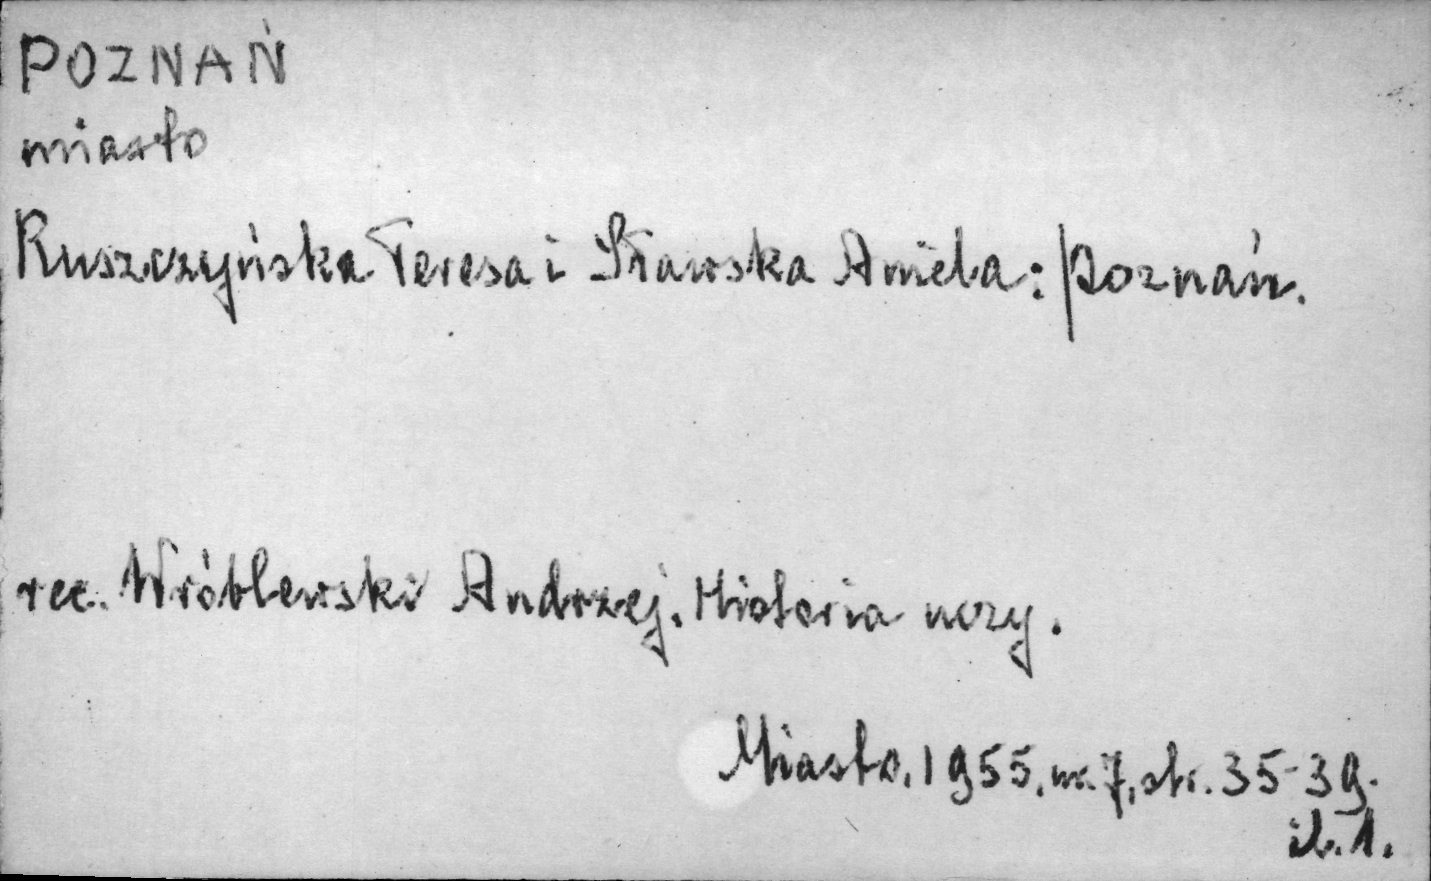 POZNAŃ
miasto
Ruszczyńska Teresa i Sławska Aniela: Poznań.
rec. Wróblewski Andrzej. Historia uczy.
Miasto, 1955, nr. 7, str. 35-39.
il. 1.